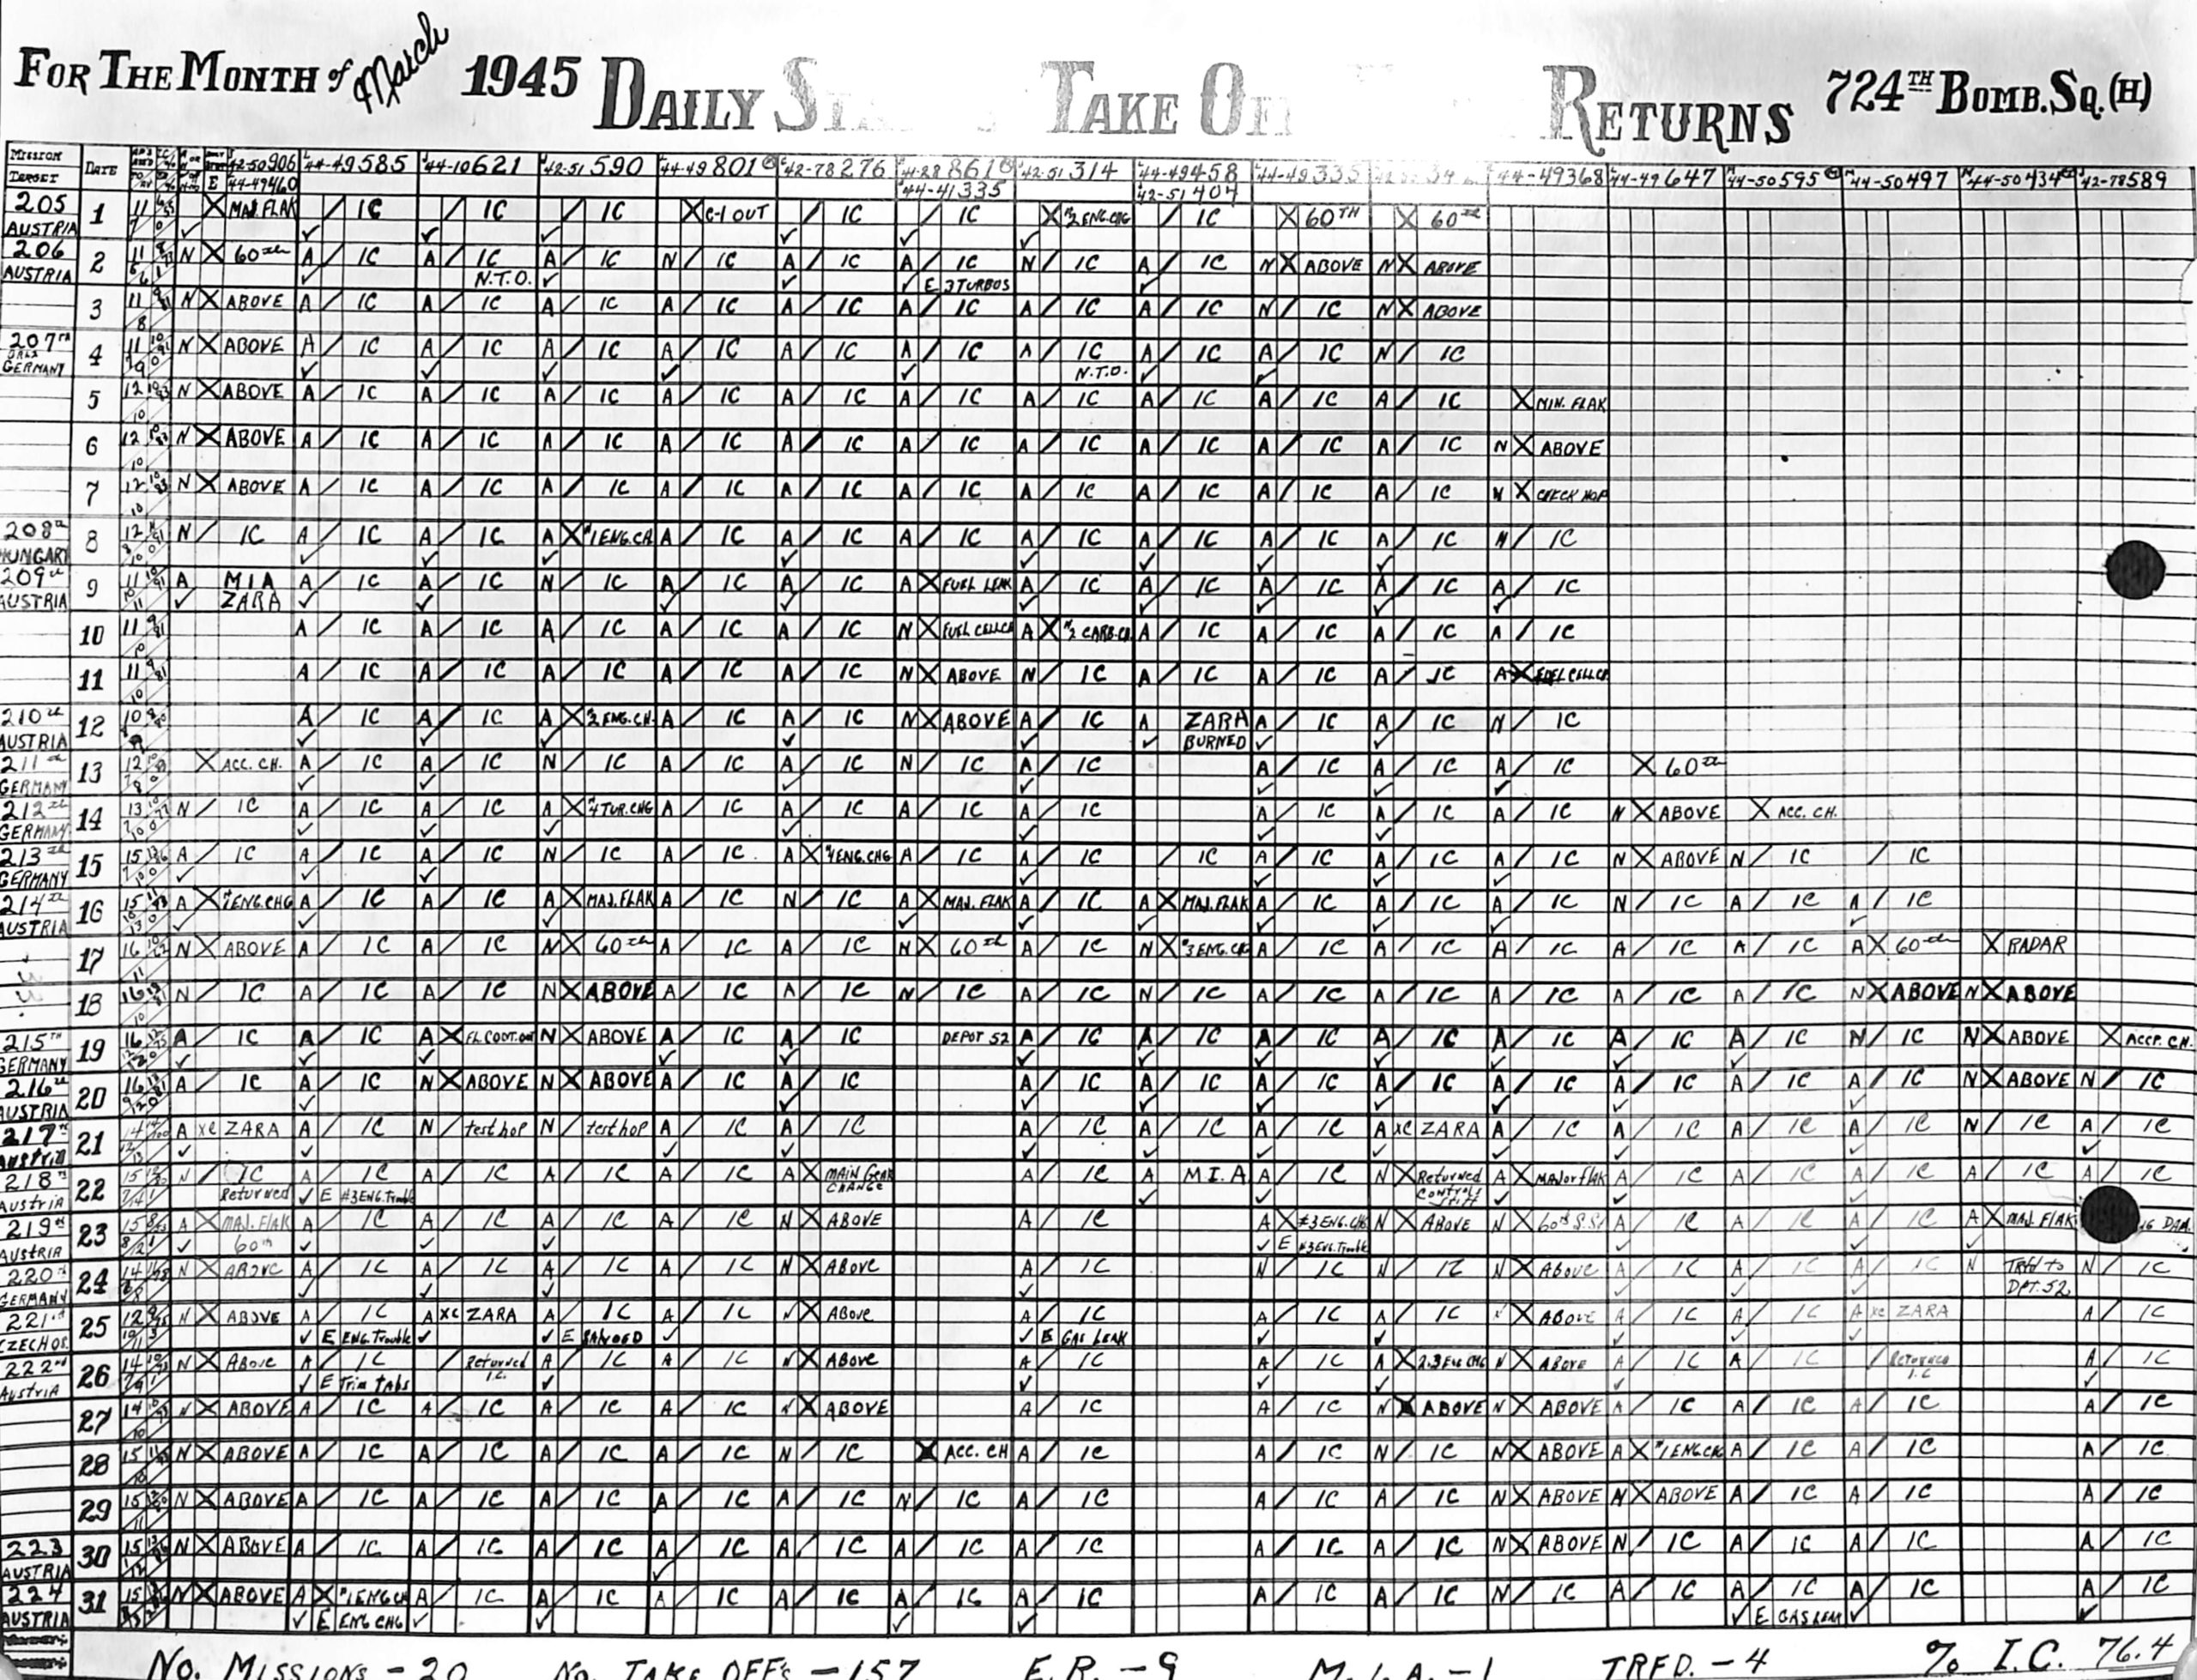 FOR THE MONTH of March 1945 DAILY TAKE RETURNS 724TH BOMB. SQ. (H)
MISSION TARGET DATE 42-50906 44-49585 44-10621 42-51590 44-49801 42-78276 44-28861 42-51314 44-49458 44-49335 44-49368 44-49647 44-50595 44-50497 44-50434 42-78589
E 44-49460 44-41335 42-51404
205 1 11 X MAJ. FLAK / IC / IC / IC X C-1 OUT / IC / IC X #2 ENG. CHG / IC X 60TH X 60TH
AUSTRIA ✓ ✓ ✓ ✓ ✓ ✓ ✓
206 2 11 N X 60th A / IC A / IC A / IC N / IC A / IC A / IC N / IC A / IC N X ABOVE N X ABOVE
AUSTRIA ✓ N.T.O. ✓ ✓ ✓ E 3 TURBOS ✓
3 11 N X ABOVE A / IC A / IC A / IC A / IC A / IC A / IC A / IC A / IC N / IC N X ABOVE
207TH 4 11 N X ABOVE A / IC A / IC A / IC A / IC A / IC A / IC A / IC A / IC A / IC N / IC
GERMANY ✓ ✓ ✓ ✓ ✓ N.T.O. ✓ ✓
5 12 N X ABOVE A / IC A / IC A / IC A / IC A / IC A / IC A / IC A / IC A / IC A / IC X MIN. FLAK
6 12 N X ABOVE A / IC A / IC A / IC A / IC A / IC A / IC A / IC A / IC A / IC A / IC N X ABOVE
7 12 N X ABOVE A / IC A / IC A / IC A / IC A / IC A / IC A / IC A / IC A / IC A / IC N X CHECK HOP
208th 8 12 N / IC A / IC A / IC A X #1 ENG. CH. A / IC A / IC A / IC A / IC A / IC A / IC A / IC N / IC
HUNGARY ✓ ✓ ✓ ✓ ✓ ✓ ✓ ✓
209th 9 11 A MIA A / IC A / IC N / IC A / IC A / IC A X FUEL LEAK A / IC A / IC A / IC A / IC A / IC
AUSTRIA ✓ ZARA ✓ ✓ ✓ ✓ ✓ ✓ ✓ ✓ ✓
10 11 A / IC A / IC A / IC A / IC A / IC N X FUEL CELL CH A X #2 CARB. CH. A / IC A / IC A / IC A / IC
11 11 A / IC A / IC A / IC A / IC A / IC N X ABOVE N / IC A / IC A / IC A / IC A X FUEL CELL CH
210th 12 10 A / IC A / IC A X #2 ENG. CH. A / IC A / IC N X ABOVE A / IC A ZARA A / IC A / IC N / IC
AUSTRIA ✓ ✓ ✓ ✓ ✓ ✓ BURNED ✓ ✓
211th 13 12 X ACC. CH. A / IC A / IC N / IC A / IC A / IC N / IC A / IC A / IC A / IC A / IC X 60th
GERMANY ✓ ✓ ✓ ✓ ✓ ✓ ✓
212th 14 13 N / IC A / IC A / IC A X #4 TUR. CHG A / IC A / IC A / IC A / IC A / IC A / IC A / IC N X ABOVE X ACC. CH.
GERMANY ✓ ✓ ✓ ✓ ✓ ✓ ✓
213th 15 15 A / IC A / IC A / IC N / IC A / IC. A X #4 ENG. CHG A / IC A / IC / IC A / IC A / IC A / IC N X ABOVE N / IC / IC
GERMANY ✓ ✓ ✓ ✓ ✓ ✓ ✓
214th 16 15 A X #1 ENG. CHG A / IC A / IC A X MAJ. FLAK A / IC N / IC A X MAJ. FLAK A / IC A X MAJ. FLAK A / IC A / IC A / IC N / IC A / IC A / IC
AUSTRIA ✓ ✓ ✓ ✓ ✓ ✓ ✓ ✓ ✓ ✓
17 16 N X ABOVE A / IC A / IC N X 60th A / IC A / IC N X 60th A / IC N X #3 ENG. CHG A / IC A / IC A / IC A / IC A / IC A X 60th X RADAR
18 16 N / IC A / IC A / IC N X ABOVE A / IC A / IC N / IC A / IC N / IC A / IC A / IC A / IC A / IC A / IC N X ABOVE N X ABOVE
215TH 19 16 A / IC A / IC A X FL. CONT. out N X ABOVE A / IC A / IC DEPOT 52 A / IC A / IC A / IC A / IC A / IC A / IC A / IC N / IC N X ABOVE X ACCP. CH.
GERMANY ✓ ✓ ✓ ✓ ✓ ✓ ✓ ✓ ✓ ✓ ✓ ✓
216th 20 16 A / IC A / IC N X ABOVE N X ABOVE A / IC A / IC A / IC A / IC A / IC A / IC A / IC A / IC A / IC A / IC N X ABOVE N / IC
AUSTRIA ✓ ✓ ✓ ✓ ✓ ✓ ✓ ✓ ✓
217th 21 14 A XC ZARA A / IC N / test hop N / test hop A / IC A / IC A / IC A / IC A / IC A XC ZARA A / IC A / IC A / IC A / IC N / IC A / IC
Austria ✓ ✓ ✓ ✓ ✓ ✓ ✓ ✓ ✓ ✓ ✓ ✓
218th 22 15 N / IC A / IC A / IC A / IC A / IC A X MAIN GEAR CHANGE A / IC A M.I.A A / IC N X Returned A X MAJOR FLAK A / IC A / IC A / IC A / IC A / IC
Austria Returned ✓ E #3 ENG. Trouble ✓ ✓ Controls Stiff ✓ ✓ ✓
219th 23 15 A X MAJ. FLAK A / IC A / IC A / IC A / IC N X ABOVE A / IC A X #3 ENG. CHG N X ABOVE N X 60th S.S. A / IC A / IC A / IC A X MAJ. FLAK DAM.
Austria ✓ 60th ✓ ✓ ✓ ✓ E #3 Eng. Trouble ✓ ✓ ✓
220th 24 14 N X ABOVE A / IC A / IC A / IC A / IC N X ABOVE A / IC N / IC N / IC N X Above A / IC A / IC A / IC N TRFD to N / IC
GERMANY ✓ ✓ ✓ ✓ ✓ ✓ ✓ DPT. 52
221st 25 12 N X ABOVE A / IC A XC ZARA A / IC A / IC N X Above A / IC A / IC A / IC N X Above A / IC A / IC A XC ZARA A / IC
CZECHOS. ✓ E ENG. Trouble ✓ ✓ E SALVOED ✓ ✓ E GAS LEAK ✓ ✓ ✓ ✓ ✓
222nd 26 14 N X Above A / IC / Returned I.C. A / IC A / IC N X Above A / IC A / IC A X 2.3 Eng CHG N X Above A / IC A / IC / Returned I.C A / IC
Austria ✓ E Trim tabs ✓ ✓ ✓ ✓ ✓ ✓
27 14 N X ABOVE A / IC A / IC A / IC A / IC N X ABOVE A / IC A / IC N X ABOVE N X ABOVE A / IC A / IC A / IC A / IC
28 15 N X ABOVE A / IC A / IC A / IC A / IC N / IC X ACC. CH A / IC A / IC N / IC N X ABOVE A X #1 ENG CHG A / IC A / IC A / IC
29 15 N X ABOVE A / IC A / IC A / IC A / IC A / IC N / IC A / IC A / IC A / IC N X ABOVE N X ABOVE A / IC A / IC A / IC
223 30 15 N X ABOVE A / IC A / IC A / IC A / IC A / IC A / IC A / IC A / IC A / IC N X ABOVE N / IC A / IC A / IC A / IC
AUSTRIA ✓
224 31 15 N X ABOVE A X #1 ENG CH A / IC A / IC A / IC A / IC A / IC A / IC A / IC A / IC N / IC A / IC A / IC A / IC A / IC
AUSTRIA ✓ E ENG CHG ✓ ✓ ✓ ✓ ✓ E GAS LEAK ✓ ✓
No. MISSIONS - 20 No. TAKE OFF's - 157 E.R. - 9 M.I.A. - 1 TRFD. - 4 % I.C. 76.4